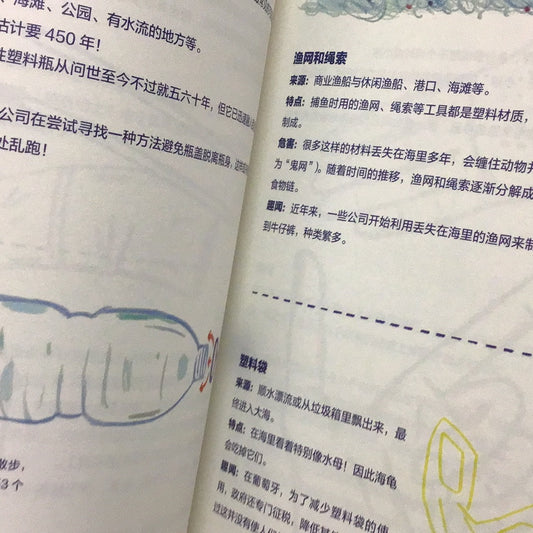 海滩、公园、有水流的地方等。
估计要 450 年！
性塑料瓶从问世至今不过就五六十年，但它已
公司在尝试寻找一种方法避免瓶盖脱离瓶身，
处乱跑！
散步，
3 个
渔网和绳索
来源：商业渔船与休闲渔船、港口、海滩等。
特点：捕鱼时用的渔网、绳索等工具都是塑料材质，
制成。
危害：很多这样的材料丢失在海里多年，会缠住动物并
为“鬼网”）。随着时间的推移，渔网和绳索逐渐分解成
食物链。
趣闻：近年来，一些公司开始利用丢失在海里的渔网来制
到牛仔裤，种类繁多。
塑料袋
来源：顺水漂流或从垃圾箱里飘出来，最
终进入大海。
特点：在海里看着特别像水母！因此海龟
会吃掉它们。
趣闻：在葡萄牙，为了减少塑料袋的使
用，政府还专门征税，降低
过这并没有使人们